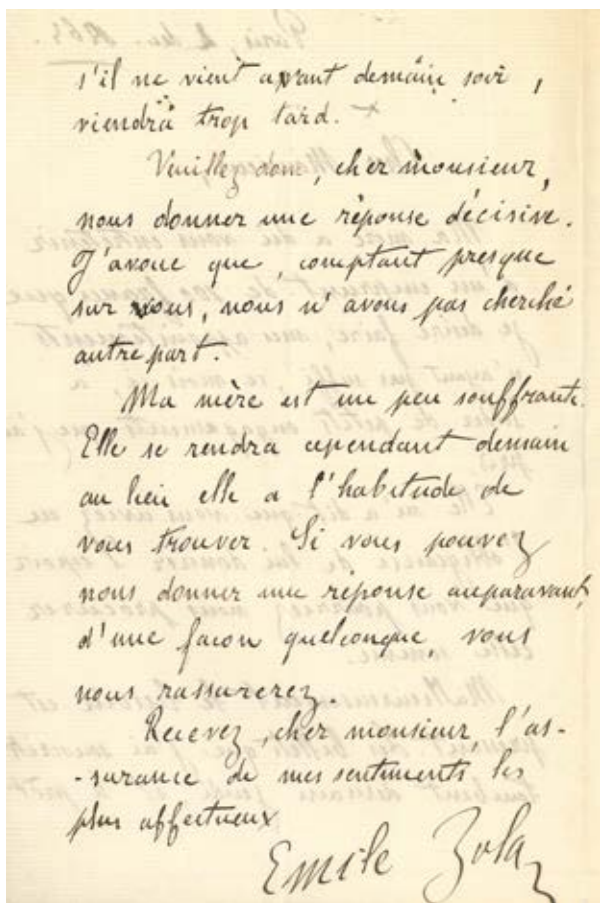 s'il ne vient avant demain soir,
viendra trop tard.
Veuillez donc, cher monsieur,
nous donner une réponse décisive.
J'avoue que, comptant presque
sur vous, nous n'avons pas cherché
autre part.
Ma mère est un peu souffrante.
Elle se rendra cependant demain
au lieu elle a l'habitude de
vous trouver. Si vous pouvez
nous donner une réponse auparavant,
d'une façon quelconque, vous
nous rassurerez.
Recevez, cher monsieur l'as-
-surance de mes sentiments les
plus affectueux
Emile Zola